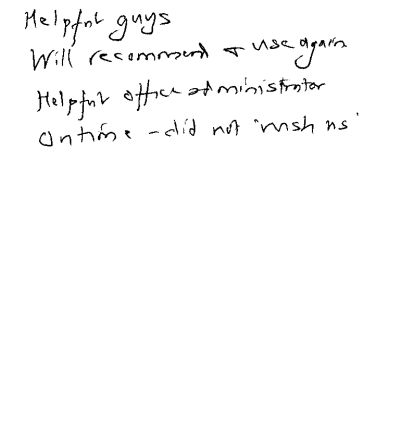 Helpful guys
Will recommend + use again
Helpful office administrator
On time - did not "rush us"